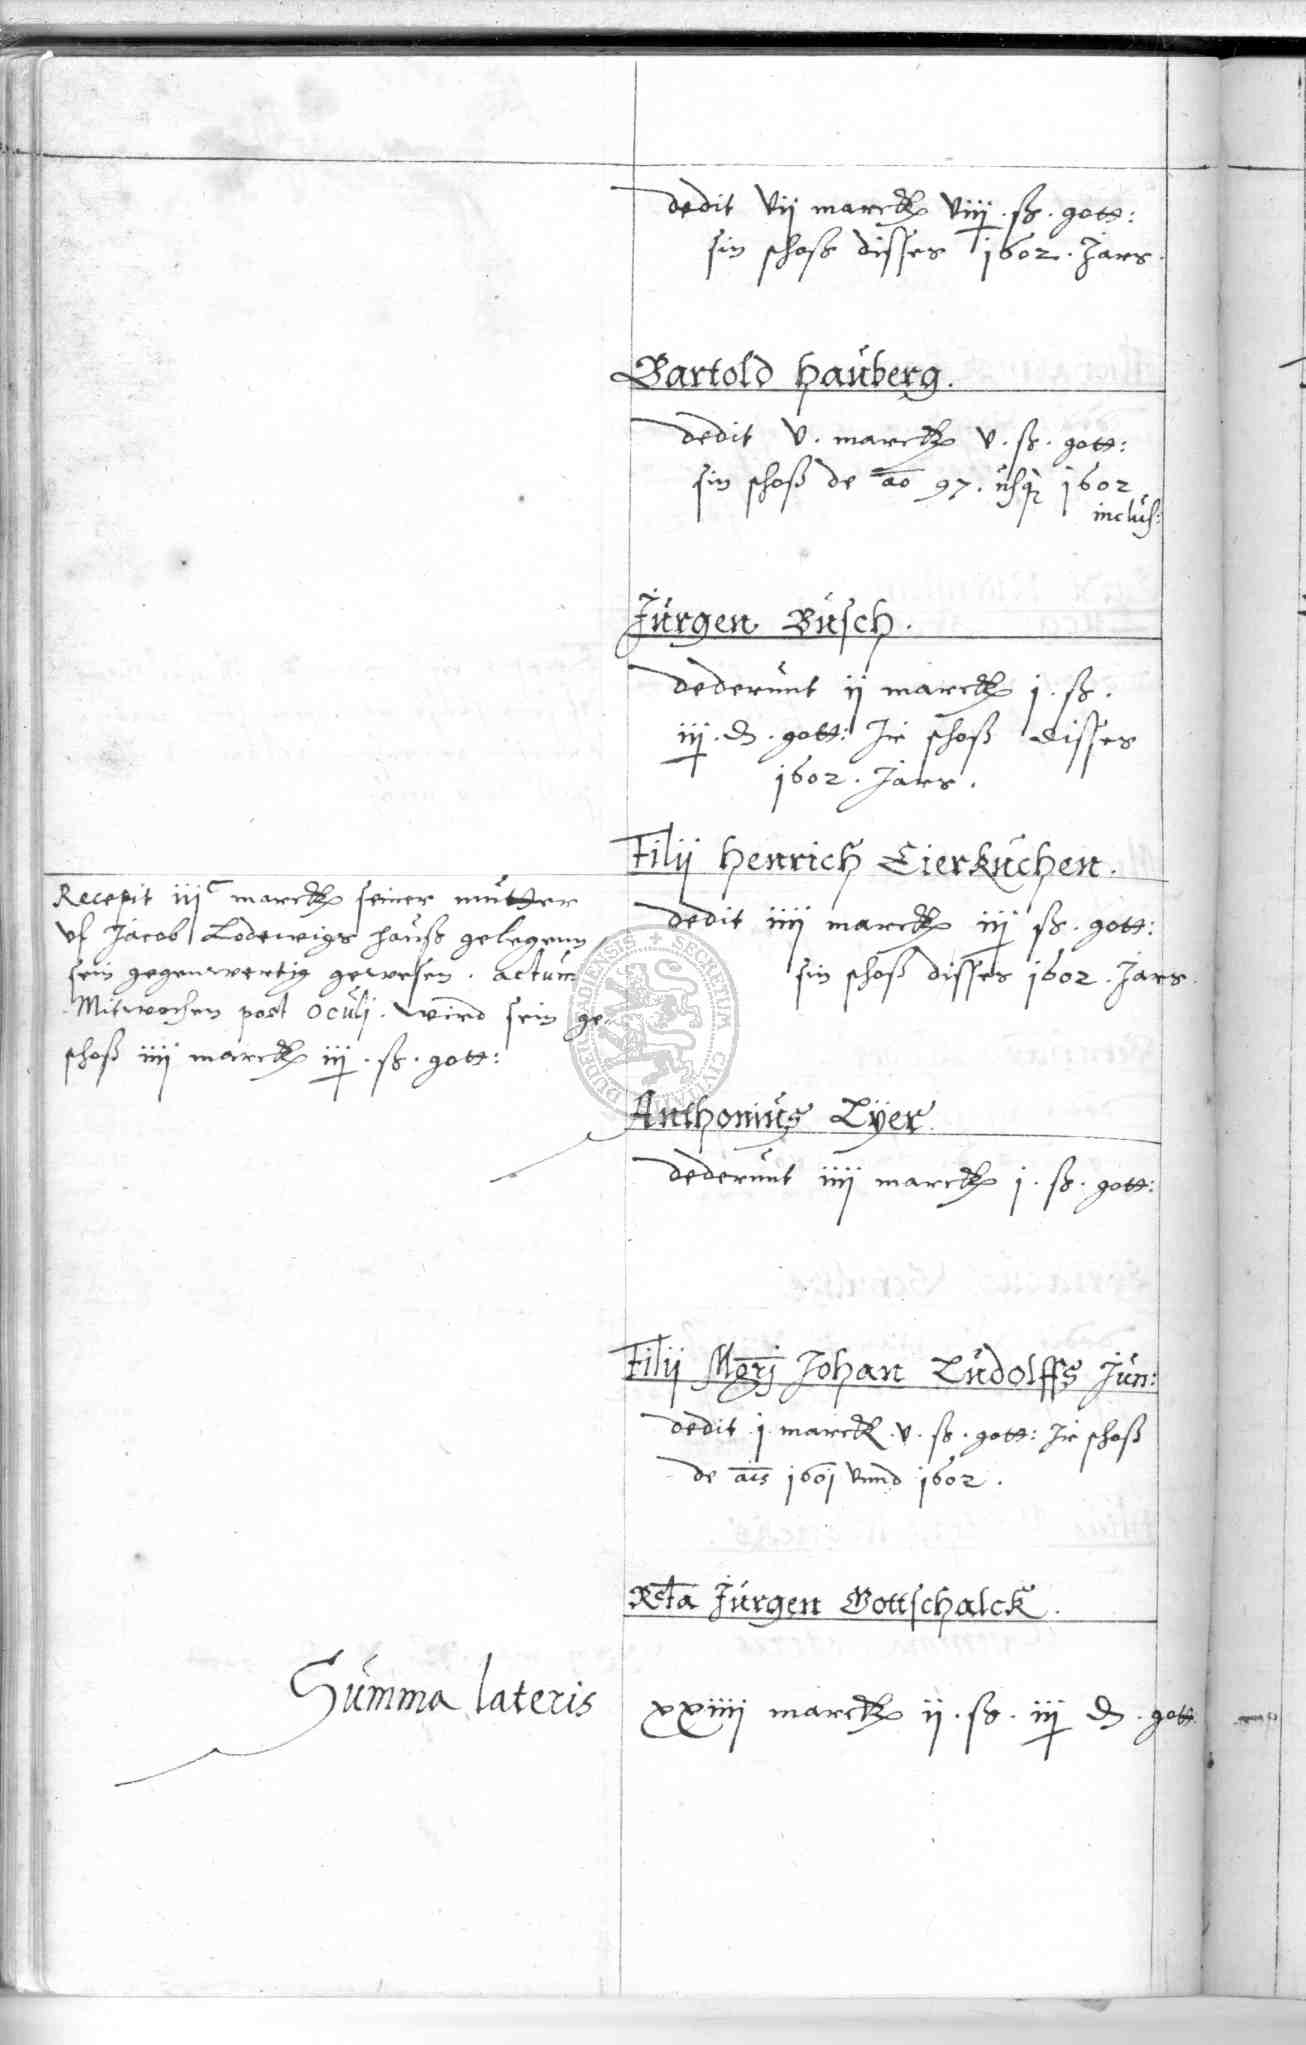 dedit vij marck viiij . ß . gott:
sin schoß disses 1602 . Jars .
Bartold Hauberg .
dedit v . marck v . ß . gott:
sin schoß de ao 97 . usq 1602
inclus:
Jürgen Busch .
dederunt ij marck j . ß .
iij . d . gott: Ir schoß disses
1602 . Jars .
Filij Henrich Eierkuchen .
Recepit iij c marck seiner mutter
uf Jacob Lodewigs hauß gelegenn
sein gegenwertig gewesen . actum
Mitwochen post Oculi . wird sein ge-
schoß iiij marck iij . ß . gott:
dedit iiij marck iij ß . gott:
sin schoß disses 1602 . Jars .
SECRETUM CIVITATIS DUDERSTADENSIS
Anthonius Lÿer
dederunt iiij marck j . ß . gott:
Filij Mgrj Johan Ludolffs Jun:
dedit j marck . v . ß . gott: Ir schoß
de ais 1601 vnnd 1602 .
Rcta Jürgen Gottschalck .
Summa lateris xxiiij marck ij . ß . iij d . gott